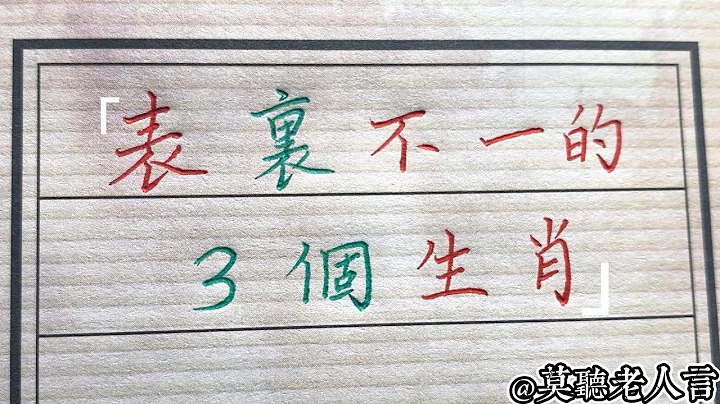 「表裏不一的
3個生肖」
@莫聽老人言